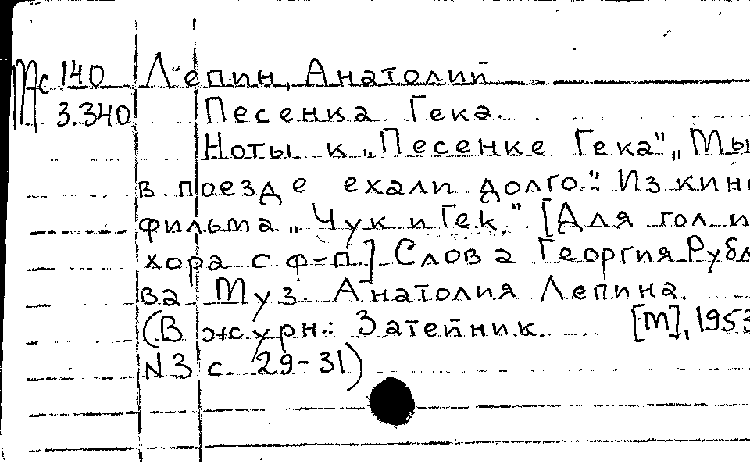 Мс 140 Лепин, Анатолий
3.340 Песенка Гека.
Ноты к „Песенке Гека", „Мы
в поезде ехали долго." Из кино
фильма „Чук и Гек." [Для гол и
хора с ф-п.] Слова Георгия Рубл
ва Муз. Анатолия Лепина.
(В журн.: Затейник. [М], 1953
N3 с. 29-31)